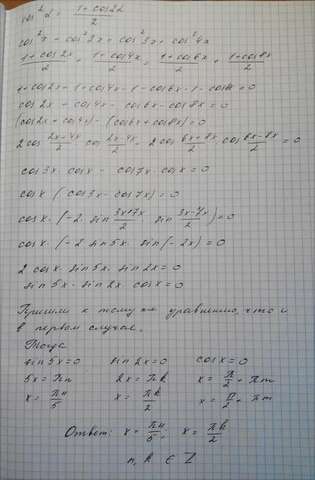 cos²α = (1 + cos2α)/2
cos²x + cos²2x = cos²3x + cos²4x
(1 + cos2x)/2 + (1 + cos4x)/2 = (1 + cos6x)/2 + (1 + cos8x)/2
1 + cos2x + 1 + cos4x - 1 - cos6x - 1 - cos8x = 0
cos2x + cos4x - cos6x - cos8x = 0
(cos2x + cos4x) - (cos6x + cos8x) = 0
2cos (2x+4x)/2 · cos (2x-4x)/2 - 2cos (6x+8x)/2 · cos (6x-8x)/2 = 0
cos3x · cosx - cos7x · cosx = 0
cosx · (cos3x - cos7x) = 0
cosx · (-2 · sin (3x+7x)/2 · sin (3x-7x)/2) = 0
cosx · (-2 · sin5x · sin(-2x)) = 0
2 cosx · sin5x · sin2x = 0
sin5x · sin2x · cosx = 0
Пришли к тому же уравнению, что и
в первом случае.
Тогда
sin5x = 0 sin2x = 0 cosx = 0
5x = πn 2x = πk x = π/2 + πm
x = πn/5 x = πk/2 x = π/2 + πm
Ответ: x = πn/5; x = πk/2
n, k ∈ Z